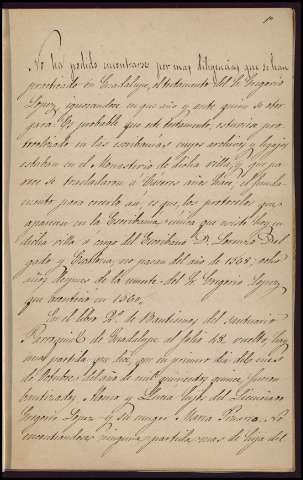 No ha podido encontrarse por mas diligencias que se han
practicado en Guadalupe, el testamento del Sr. Gregorio
Lopez, ignorandose en que año y ante quien se otor
gara. Es probable que este testamento, estuviese pro
tocolizado en las escribanias cuyos archivos y legajos
estaban en el Monasterio de dicha villa, y que pa
rece se trasladaron a diversos años hace; el funda
mento para creerlo asi, es que, los protocolos que
aparecen en la Escribania unica que existe hoy en
dicha villa a cargo del Escribano D. Lorenzo Del
gado y no pasan del año de 1568, ocho
años despues de la muerte del Sr. Gregorio Lopez,
que acaeció en 1560.
En el libro 1º de Bautismos del santuario
Parroquial de Guadalupe al folio 48 vuelto, hay
una partida que dice, que en primero dia del mes
de Octubre del año de mil quinientos quince fueron
bautizados Alonso y Lucia hijos del Licenciado
Gregorio Lopez y su muger Maria Pizarro. No
encontrandose ninguna partida mas de hijo del